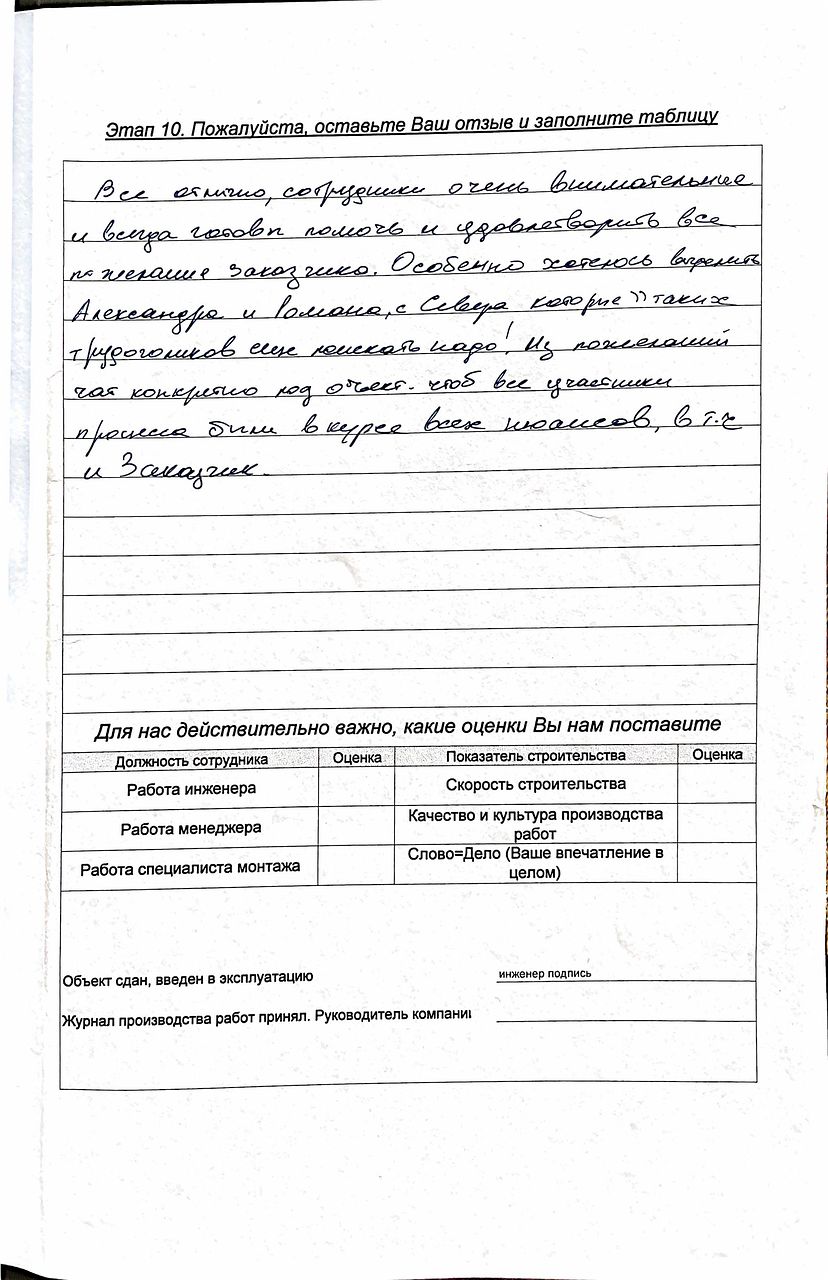 Этап 10. Пожалуйста, оставьте Ваш отзыв и заполните таблицу
Все отлично, сотрудники очень внимательные
и всегда готовы помочь и удовлетворить все
пожелание заказчика. Особенно хотелось выделить
Александра и Романа, с Севера которые)) таких
трудоголиков еще поискать надо! Из пожеланий
чат конкретно под объект. чтоб все участники
процесса были в курсе всех нюансов, в т.ч
и Заказчик.
Для нас действительно важно, какие оценки Вы нам поставите
Должность сотрудника Оценка Показатель строительства Оценка
Работа инженера Скорость строительства
Работа менеджера Качество и культура производства
работ
Работа специалиста монтажа Слово=Дело (Ваше впечатление в
целом)
Объект сдан, введен в эксплуатацию инженер подпись
Журнал производства работ принял. Руководитель компани